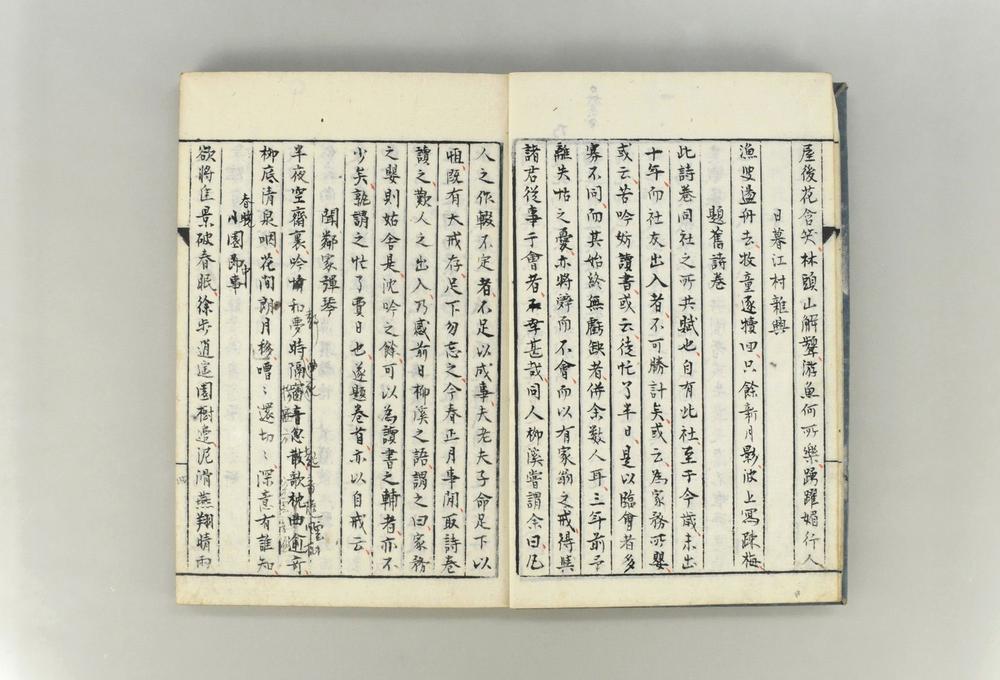 屋後花含笑林頭山解顰游魚何所樂踴躍媚行人
日暮江村雜興
漁叟盪舟去牧童逐犢回只餘新月影波上寫疎梅
題舊詩卷
此詩卷同社之所共賦也自有此社至于今歲未出
十年而社友出入者不可勝計矣或云為家務所嬰
或云苦吟妨讀書或云徒忙了半日是以臨會者多
寡不同而其始終無虧缺者併余數人耳三年前予
離失怙之憂亦將辭而不會而以有家翁之戒得與
諸君從事于會者不幸甚哉同人柳溪嘗謂余曰凡
人之作輟不定者不足以成事夫老夫子命足下以
恒既有大戒存足下勿忘之今春正月事閒取詩卷
讀之歎人之出入乃感前日柳溪之語謂之曰家務
之嬰則姑舍是沈吟之餘可以為讀書之輔者亦不
少矣孰謂之忙了費日也遂題卷首亦以自戒云
聞鄰家彈琴
半夜空齋裏吟愉和夢時隔窗音忽散歌枕曲逾奇
柳底清泉咽花間朗月移嘈〻還切〻深意有誰知
春晚
小園即事
欲將佳景破春眠徐步逍遥園樹邊泥滑燕翔晴雨